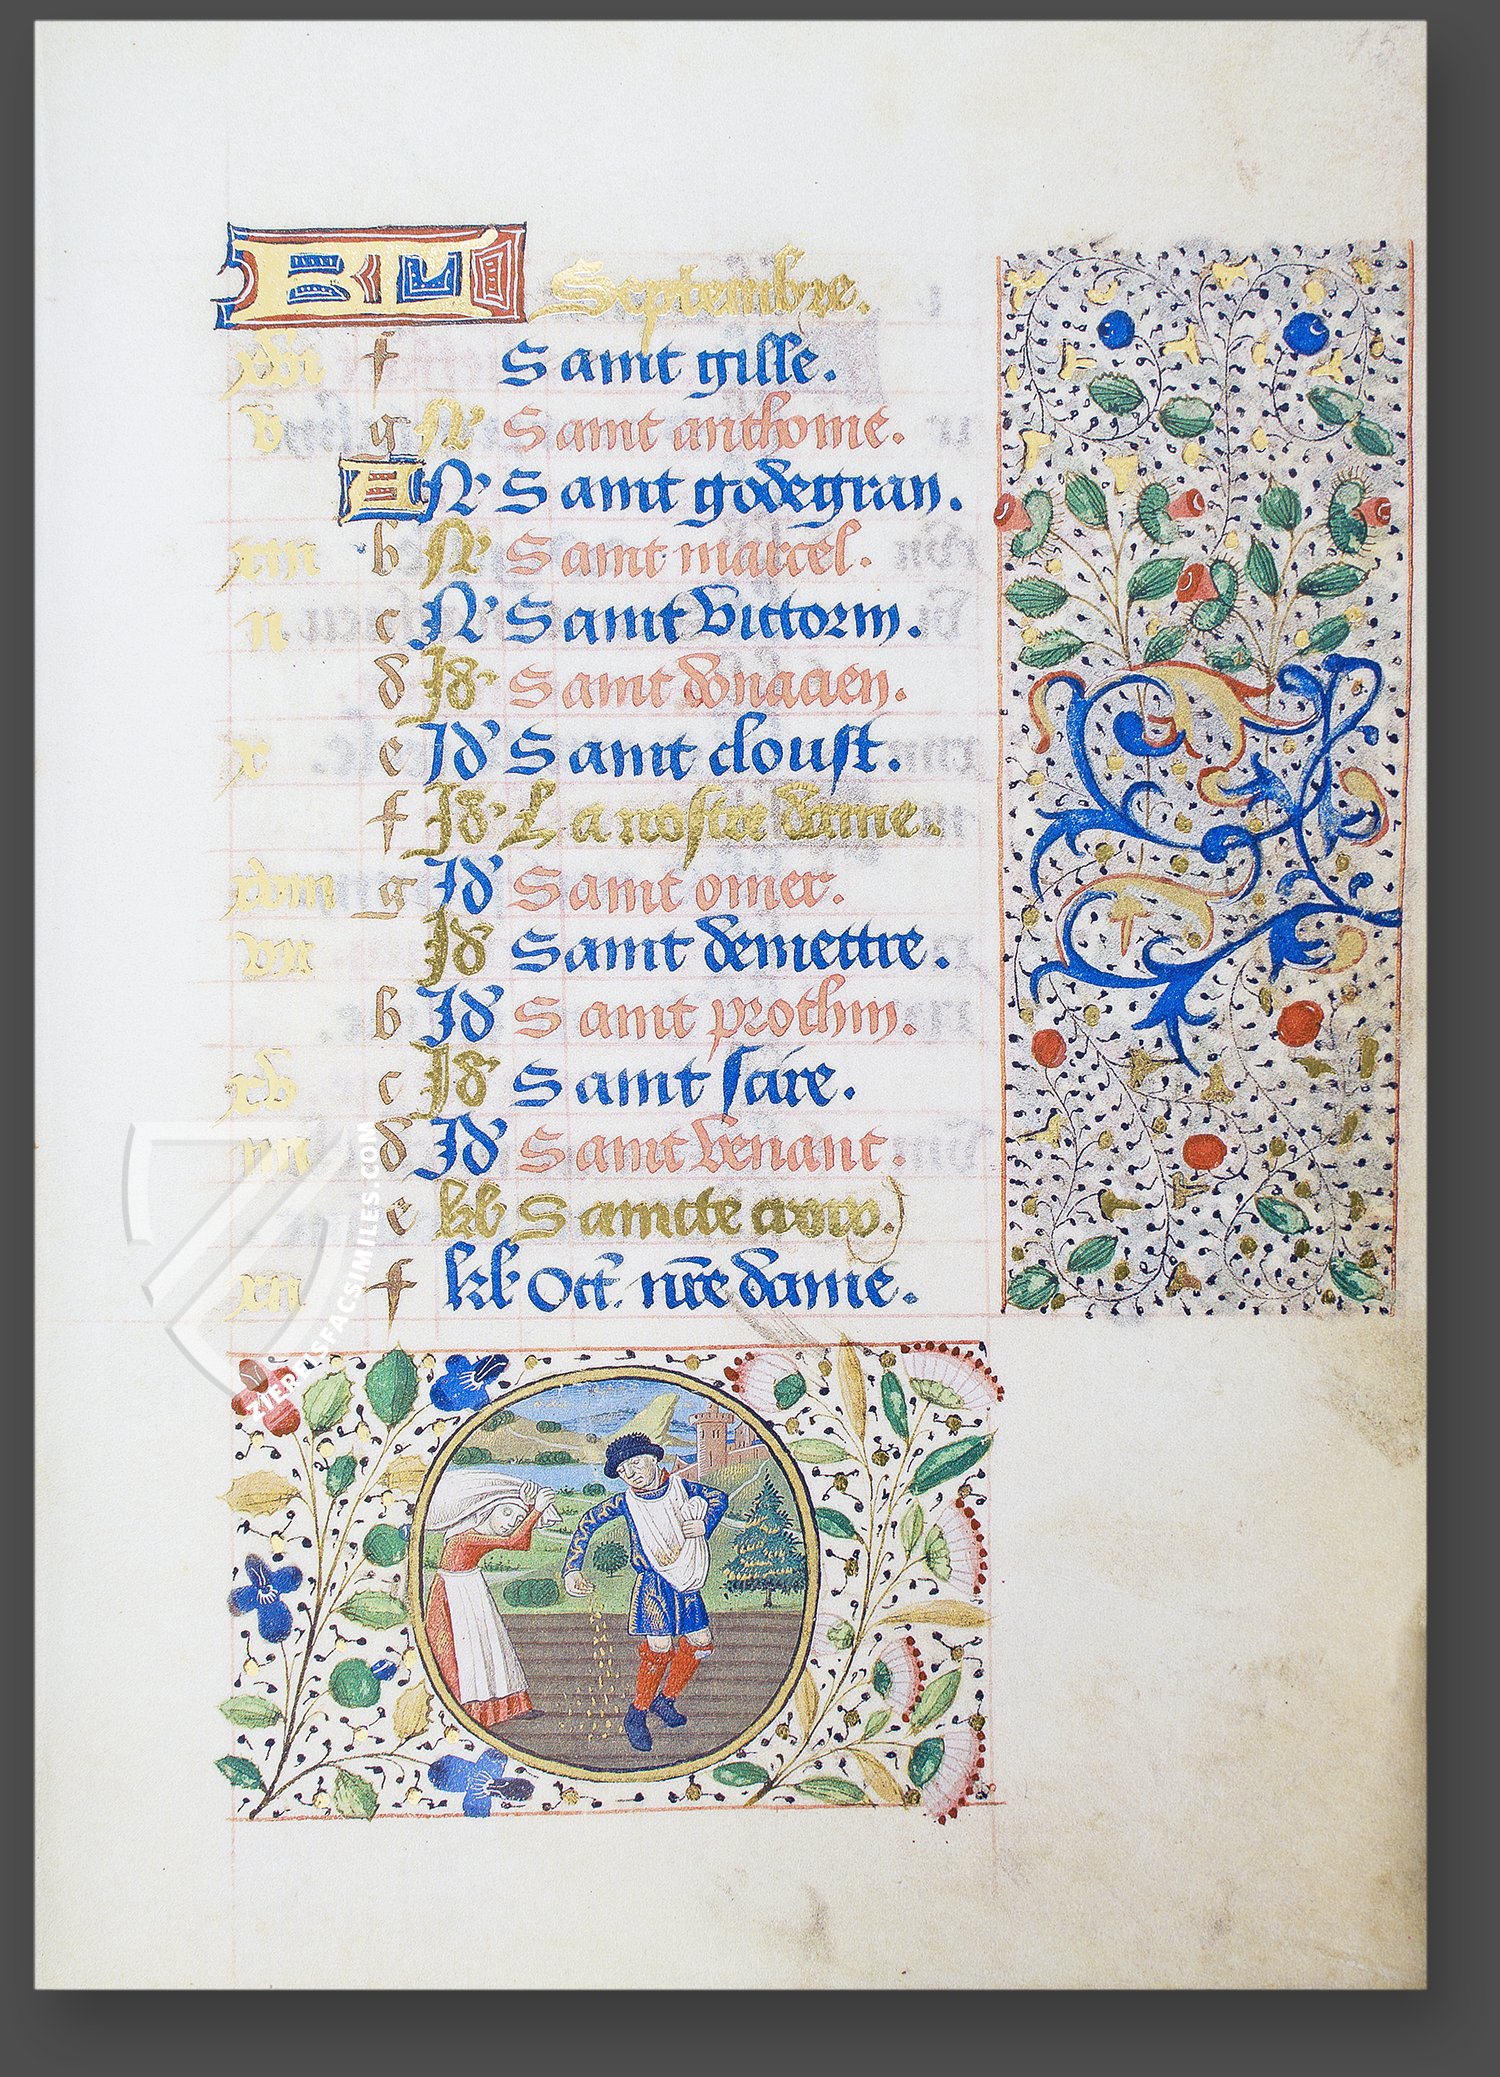 15
KL Septembre.
xvi f Saint gille.
v g N' Saint anthoine.
A N' Saint godegran.
xiii b N' Saint marcel.
ii c N' Saint Victorin.
d Id' Saint donacien.
x e Id' Saint cloust.
f Id' La nostre dame.
xviii g Id' Saint omer.
vii Id' Saint demettre.
b Id' Saint prothin.
xv c Id' Saint scire.
iiii d Id' Saint Venant.
e kl Saincte croix.
xii f kl Oct. nre dame.
ZIEREISFACSIMILES.COM